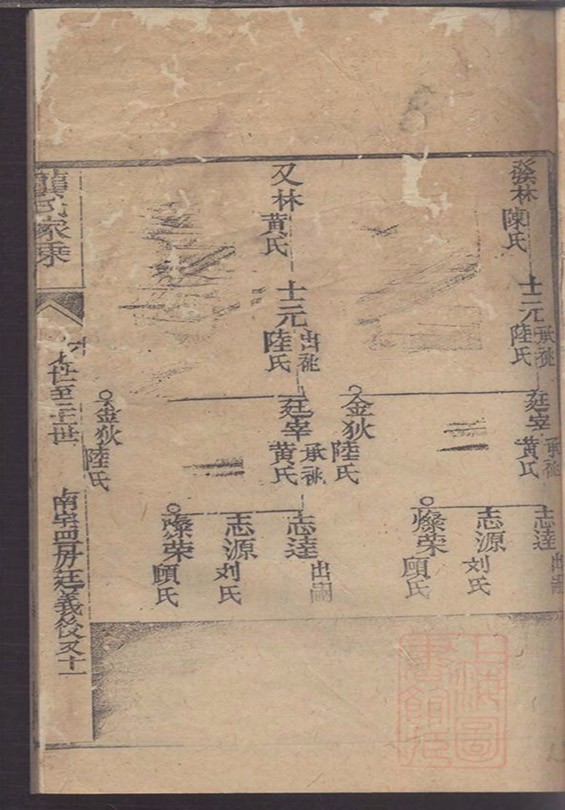 葵林 陳氏
士元 承祧 陸氏
廷宰 承祧 黄氏
志達 出嗣
志源 刘氏
燦荣 顧氏
金狄 陸氏
又林 黄氏
士元 出祧 陸氏
廷宰 承祧 黄氏
志達 出嗣
志源 刘氏
燦荣 顧氏
金狄 陸氏
龔氏家乘
世至二十世
南宅四房廷義後又十一
上海圖書館